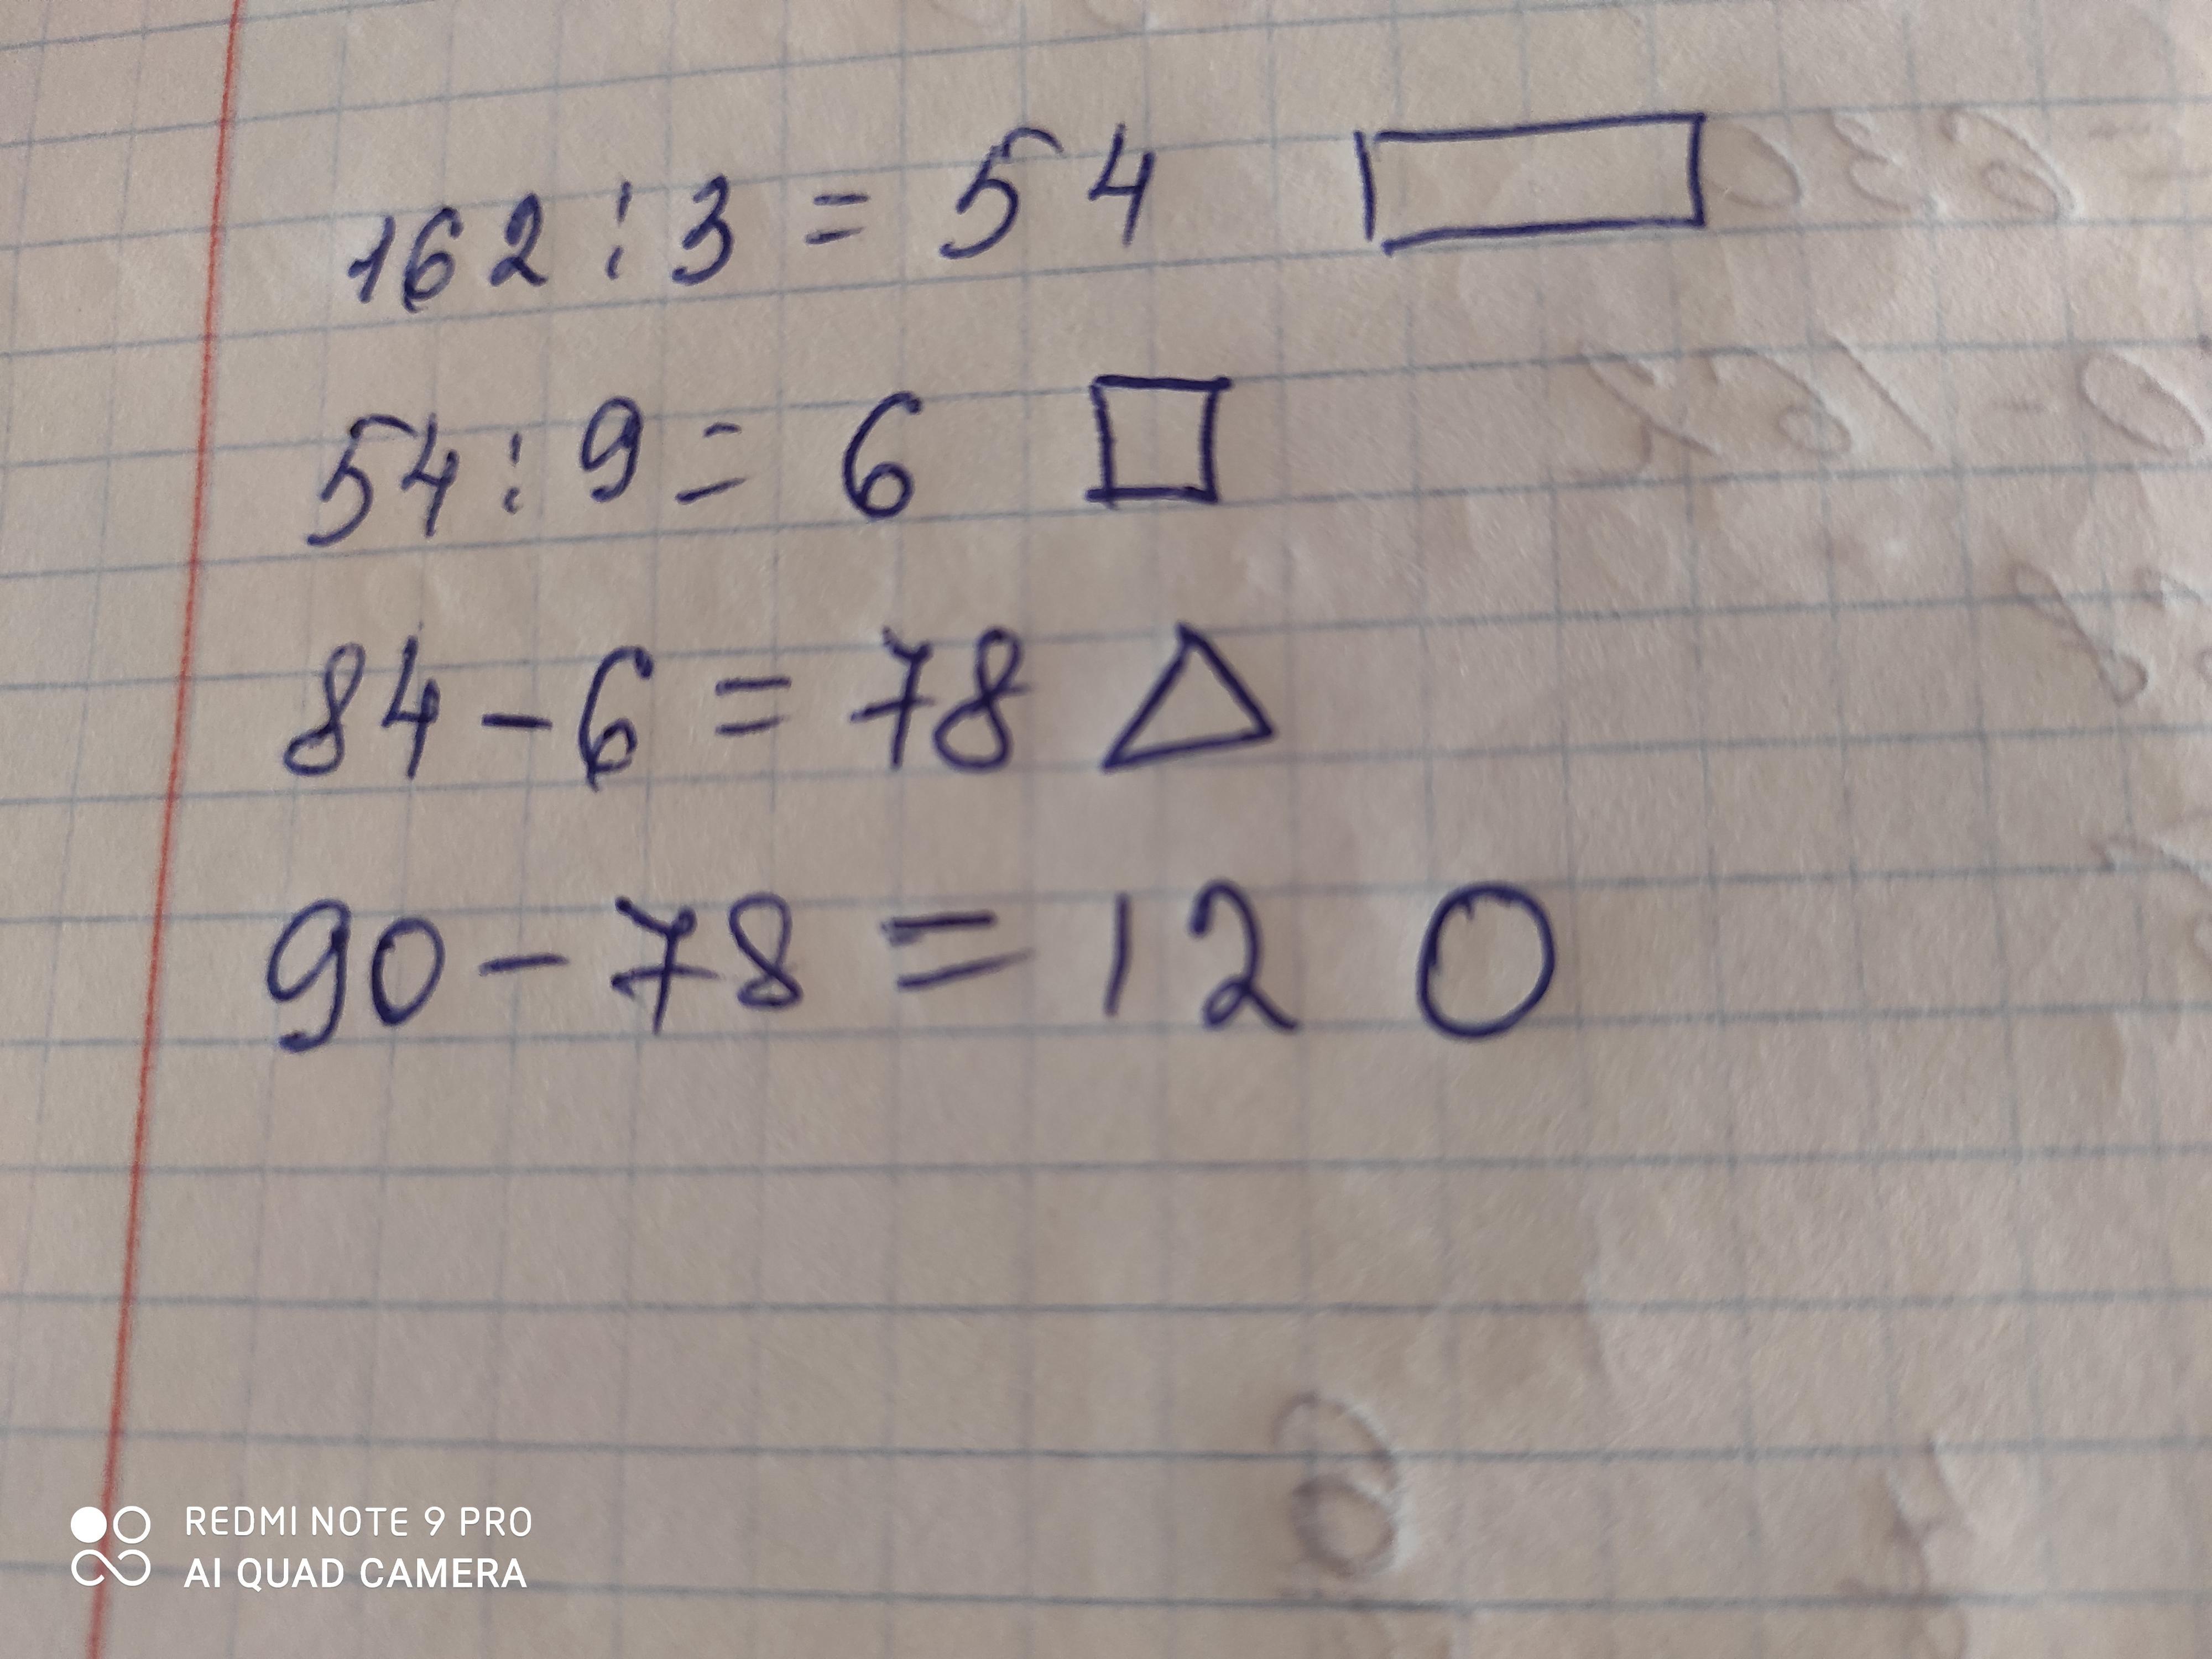 162 : 3 = 54
54 : 9 = 6
84 - 6 = 78
90 - 78 = 12
REDMI NOTE 9 PRO
AI QUAD CAMERA